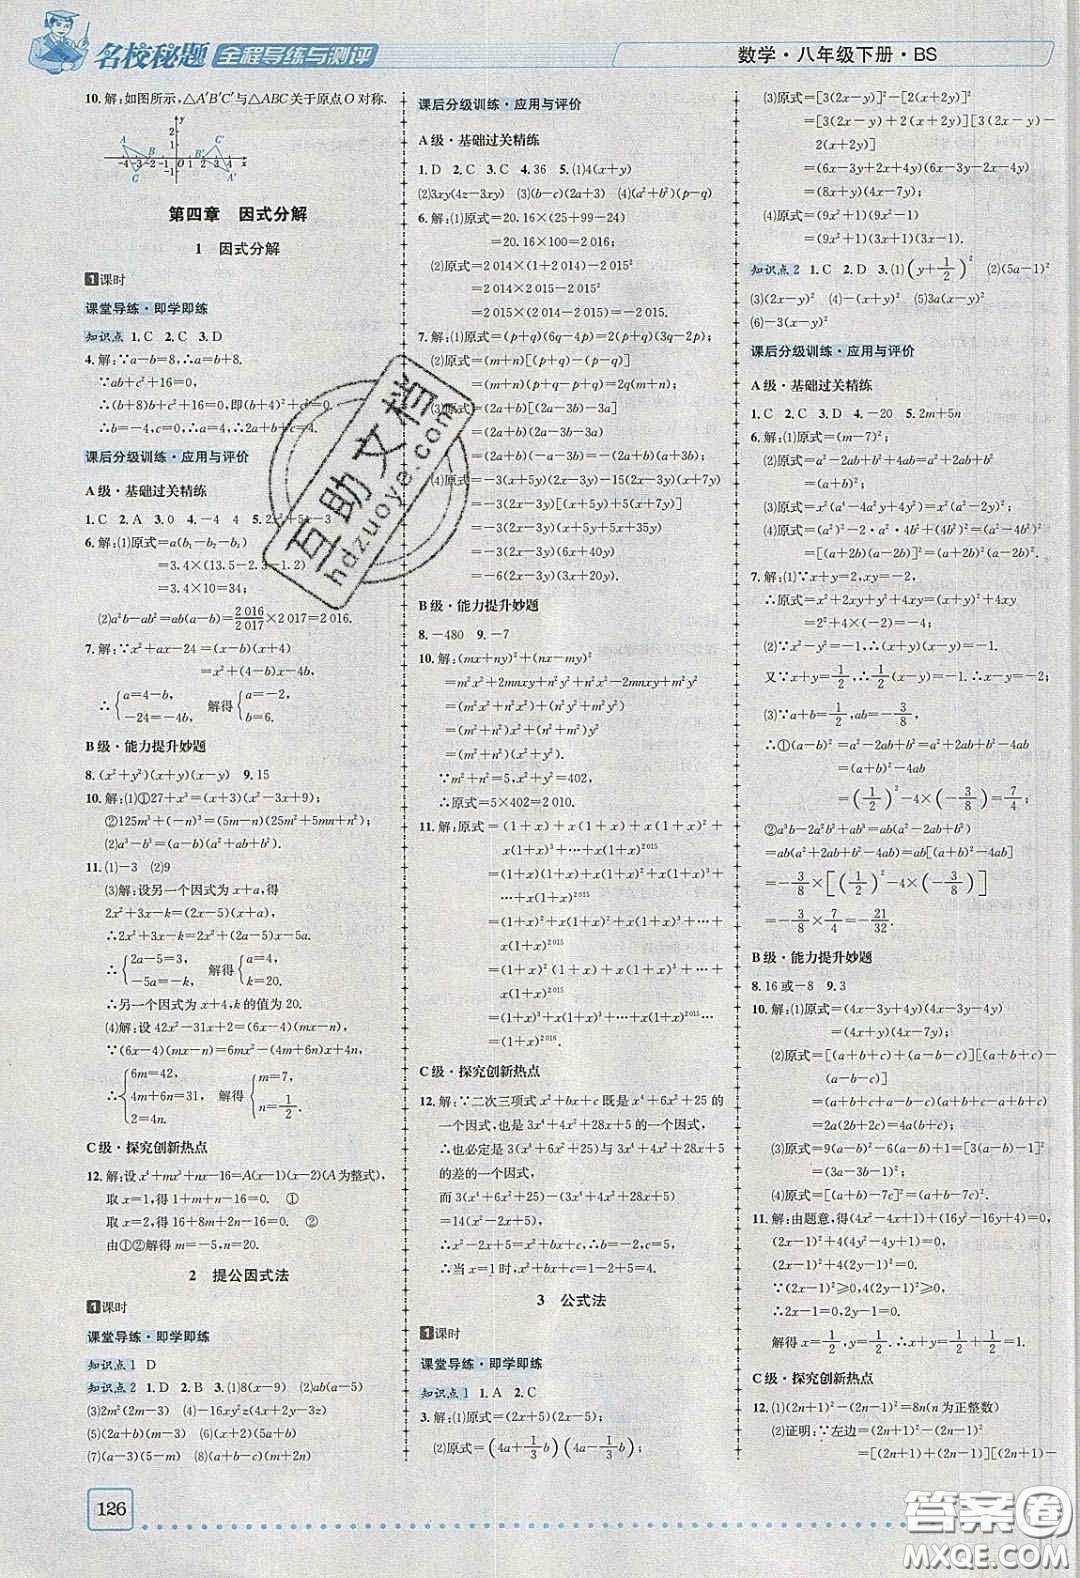 名校秘题 全程导练与测评
数学·八年级下册·BS
10.解:如图所示,△A′B′C′与△ABC关于原点O对称.
第四章 因式分解
1 因式分解
1课时
课堂导练·即学即练
知识点 1.C 2.C 3.D
4.解:∵a−b=8,∴a=b+8.
∵ab+c²+16=0,
∴(b+8)b+c²+16=0,即(b+4)²+c²=0
∴b=-4,c=0,∴a=4,∴2a+b+c=4.
课后分级训练·应用与评价
A级·基础过关精练
1.C 2.A 3.0 4.-4 4 5.2x²+5x-3
6.解:(1)原式=a(b₁-b₂-b₃)
=3.4×(13.5-2.3-1.2)
=3.4×10=34;
(2)a²b-ab²=ab(a-b)=2 016/2 017×2 017=2 016.
7.解:∵x²+ax-24=(x-b)(x+4)
=x²+(4-b)x-4b,
∴{a=4-b, -24=-4b, 解得{a=-2, b=6.
B级·能力提升妙题
8.(x²+y²)(x+y)(x-y) 9.15
10.解:(1)①27+x³=(x+3)(x²-3x+9);
②125m³+(-n)³=(5m-n)(25m²+5mn+n²);
(2)a³-b³=(a-b)(a²+ab+b²).
11.(1)-3 (2)9
(3)解:设另一个因式为x+a,得
2x²+3x-k=(2x-5)(x+a)
∴2x²+3x-k=2x²+(2a-5)x-5a.
∴{2a-5=3, -5a=-k, 解得{a=4, k=20.
∴另一个因式为x+4,k的值为20.
(4)解:设42x²-31x+2=(6x-4)(mx-n),
∵(6x-4)(mx-n)=6mx²-(4m+6n)x+4n,
∴{6m=42, 4m+6n=31, 4n=2. 解得{m=7, n=1/2.
C级·探究创新热点
12.解:设x⁴+mx³+nx-16=A(x-1)(x-2)(A为整式),
取x=1,得1+m+n-16=0. ①
取x=2,得16+8m+2n-16=0. ②
由①②解得m=-5,n=20.
2 提公因式法
1课时
课堂导练·即学即练
知识点1 D
知识点2 1.D 2.B 3.(1)8(x-9) (2)ab(a-5)
(3)2m²(2m-3) (4)-xy²z(4x-9z)
(5)(2a+b)(m-3) (6)2x(5a-b)
(7)(a-3)(5-m) (8)-4(m-n)³
126
课后分级训练·应用与评价
A级·基础过关精练
1.D 2.C 3.C 4.36 5.(1)4(x+y)
(2)3xy(4z-3xy) (3)(b-c)(2a+3) (4)(a²+b²)(p-q)
6.解:(1)原式=20.16×(25+99-24)
=20.16×100=2 016;
(2)原式=2 014×(1+2 014)-2 015²
=2 014×2 015-2 015²
=2 015×(2 014-2 015)=-2 015.
7.解:(1)原式=(p+q)(6q-4p)=2(p+q)(3q-2p);
(2)原式=(m+n)[(p+q)-(p-q)]
=(m+n)(p+q-p+q)=2q(m+n);
(3)原式=(2a+b)[(2a-3b)-3a]
=(2a+b)(2a-3b-3a)
=(2a+b)(-a-3b)=-(2a+b)(a+3b);
(4)原式=-3(x+5y)(2x-3y)-15(2x-3y)(x+7y)
=-3(2x-3y)[(x+5y)+5(x+7y)]
=-3(2x-3y)(x+5y+5x+35y)
=-3(2x-3y)(6x+40y)
=-6(2x-3y)(3x+20y).
B级·能力提升妙题
8.-480 9.-7
10.解:(mx+ny)²+(nx-my)²
=m²x²+2mnxy+n²y²+n²x²-2mnxy+m²y²
=(m²x²+n²x²)+(n²y²+m²y²)
=(m²+n²)x²+(m²+n²)y²
=(m²+n²)(x²+y²).
∵m²+n²=5,x²+y²=402,
∴原式=5×402=2 010.
11.解:原式=(1+x)+x(1+x)+x(1+x)²+
x(1+x)³+…+x(1+x)²⁰¹⁵
=(1+x)(1+x)+x(1+x)²+x(1+x)³
+…+x(1+x)²⁰¹⁵
=(1+x)²+x(1+x)²+x(1+x)³+…+
x(1+x)²⁰¹⁵
=(1+x)²(1+x)+x(1+x)³+…+x(1+x)²⁰¹⁵
=(1+x)³+x(1+x)³+…+x(1+x)²⁰¹⁵
=(1+x)²⁰¹⁶.
C级·探究创新热点
12.解:∵二次三项式x²+bx+c既是x⁴+6x²+25的
一个因式,也是3x⁴+4x²+28x+5的一个因式,
∴也必定是3(x⁴+6x²+25)与3x⁴+4x²+28x+5
的差的一个因式,
而3(x⁴+6x²+25)-(3x⁴+4x²+28x+5)
=14(x²-2x+5),
∴x²-2x+5=x²+bx+c,∴b=-2,c=5,
∴当x=1时,x²+bx+c=x²-2x+5=4.
3 公式法
1课时
课堂导练·即学即练
知识点1 1.A 2.C
3.解:(1)原式=(2x+5)(2x-5);
(2)原式=(4a+1/3b)(4a-1/3b);
(3)原式=[3(2x-y)]²-[2(x+2y)]²
=[3(2x-y)+2(x+2y)][3(2x-y)-
2(x+2y)]
=(6x-3y+2x+4y)(6x-3y-2x-4y)
=(8x+y)(4x-7y);
(4)原式=(9x²+1)(9x²-1)
=(9x²+1)(3x+1)(3x-1).
知识点2 1.C 2.D 3.(1)(y+1/2)² (2)(5a-1)²
(3)(2x-y)² (4)(x-y)² (5)3a(x-y)²
(6)-3(x-y)²
课后分级训练·应用与评价
A级·基础过关精练
1.C 2.C 3.D 4.-20 5.2m+5n
6.解:(1)原式=(m-7)²;
(2)原式=a²-2ab+4ab+b²=a²+2ab+b²
=(a+b)²;
(3)原式=x²(4x²-4x+1)=x²(2x-1)²;
(4)原式=(a²)²-2·a²·4b²+(4b²)²=(a²-4b²)²
=[(a+2b)(a-2b)]²=(a+2b)²(a-2b)².
7.解:(1)∵x+y=2,xy=-2,
∴原式=x²+2xy+y²+xy=(x+y)²+xy
=2²+4-2=6;
(2)∵x²-y²=-1,∴(x+y)(x-y)=-1.
又∵x+y=1/2,∴1/2(x-y)=-1.∴x-y=-2;
(3)∵a+b=1/2,ab=-3/8,
∴①(a-b)²=a²-2ab+b²=a²+b²+2ab-4ab
=(a+b)²-4ab
=(1/2)²-4×(-3/8)=7/4;
②a³b-2a²b²+ab³=ab(a²-2ab+b²)
=ab(a²+2ab+b²-4ab)=ab[(a+b)²-4ab]
=-3/8×[(1/2)²-4×(-3/8)]
=-3/8×7/4=-21/32.
B级·能力提升妙题
8.16或-8 9.3
10.解:(1)原式=(4x-3y+4y)(4x-3y-4y)
=(4x+y)(4x-7y);
(2)原式=[(a+b+c)+(a+b-c)][(a+b+c)-
(a+b-c)]+4ac
=(a+b+c+a+b-c)(a+b+c-a-b+c)+4ac
=2a(2b+2c)=4a(b+c);
(3)原式=9(a-b)²-6(a-b)+1=[3(a-b)-1]²
=(3a-3b-1)²;
(4)原式=[(a+b)-7c]²=(a+b-7c)².
11.解:由题意,得(4x²-4x+1)+(16y²-16y+4)=0,
(2x-1)²+4(4y²-4y+1)=0,
(2x-1)²+4(2y-1)²=0.
∵(2x-1)²≥0,4(2y-1)²≥0,
∴2x-1=0,2y-1=0.
解得x=1/2,y=1/2.∴x+y=1/2+1/2=1.
C级·探究创新热点
12.(1)(2n+1)²-(2n-1)²=8n(n为正整数)
(2)证明:∵左边=(2n+1)²-(2n-1)²
=[(2n+1)+(2n-1)][(2n+1)-
互助文档
hdzuoye.com
答案圈
MXQE.COM